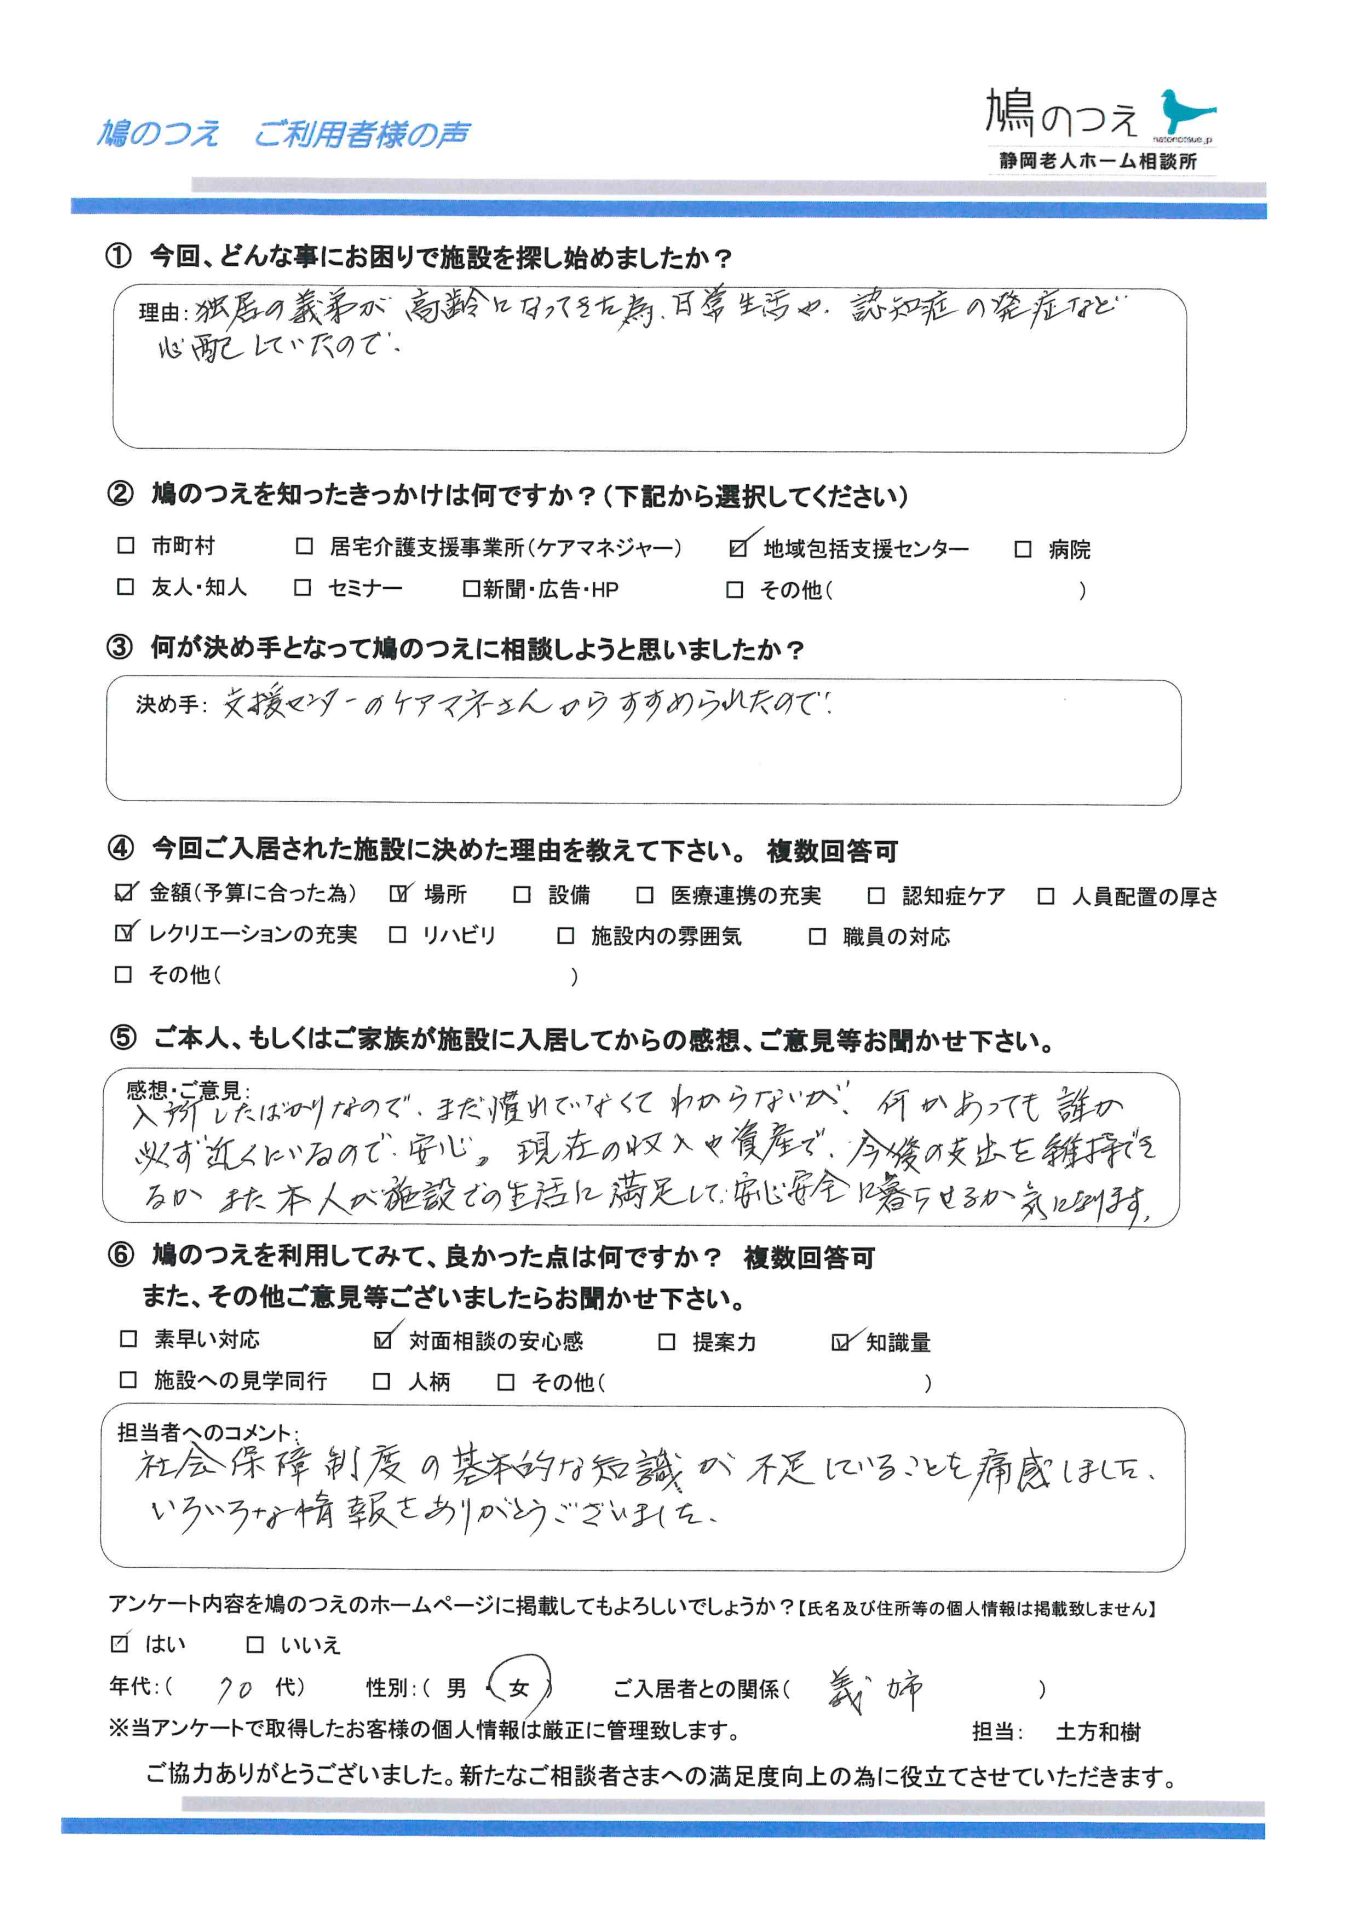 鳩のつえ　ご利用者様の声
鳩のつえ
hatonotsue.jp
静岡老人ホーム相談所
① 今回、どんな事にお困りで施設を探し始めましたか？
理由：独居の義弟が高齢になってきた為、日常生活や、認知症の発症など
心配していたので、
② 鳩のつえを知ったきっかけは何ですか？（下記から選択してください）
□ 市町村　□ 居宅介護支援事業所（ケアマネジャー）　☑ 地域包括支援センター　□ 病院
□ 友人・知人　□ セミナー　□新聞・広告・HP　□ その他（　　　）
③ 何が決め手となって鳩のつえに相談しようと思いましたか？
決め手：支援センターのケアマネさんからすすめられたので、
④ 今回ご入居された施設に決めた理由を教えて下さい。 複数回答可
☑ 金額（予算に合った為）　☑ 場所　□ 設備　□ 医療連携の充実　□ 認知症ケア　□ 人員配置の厚さ
☑ レクリエーションの充実　□ リハビリ　□ 施設内の雰囲気　□ 職員の対応
□ その他（　　　）
⑤ ご本人、もしくはご家族が施設に入居してからの感想、ご意見等お聞かせ下さい。
感想・ご意見：
入所したばかりなので、まだ慣れていなくてわからないが、何かあっても誰か
必ず近くにいるので、安心。現在の収入や資産で、今後の支出を維持でき
るか また本人が施設での生活に満足して、安心安全に暮らせるか気になります。
⑥ 鳩のつえを利用してみて、良かった点は何ですか？ 複数回答可
また、その他ご意見等ございましたらお聞かせ下さい。
□ 素早い対応　☑ 対面相談の安心感　□ 提案力　☑ 知識量
□ 施設への見学同行　□ 人柄　□ その他（　　　）
担当者へのコメント：
社会保障制度の基本的な知識が不足していることを痛感しました、
いろいろな情報をありがとうございました、
アンケート内容を鳩のつえのホームページに掲載してもよろしいでしょうか？【氏名及び住所等の個人情報は掲載致しません】
☑ はい　□ いいえ
年代：（ 70 代）　性別：（ 男 ・ 女 ）　ご入居者との関係（ 義姉 ）
※当アンケートで取得したお客様の個人情報は厳正に管理致します。　担当：　土方和樹
ご協力ありがとうございました。新たなご相談者さまへの満足度向上の為に役立てさせていただきます。